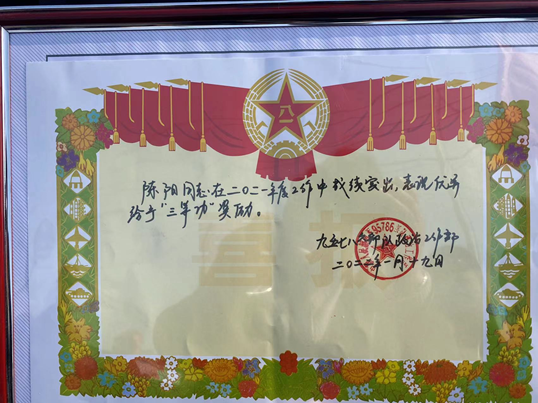 八一
陈阳同志：在二〇二一年度工作中成绩突出，表现优异
给予“三等功”奖励。
喜报
九五七八六部队政治工作部
95786
二〇二二年一月十九日